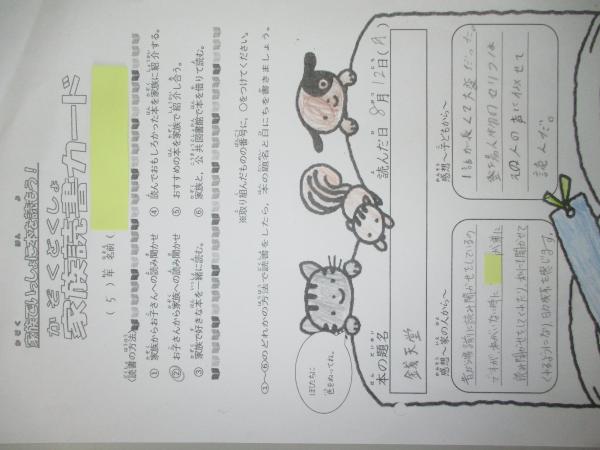 家族でいっしょに本を読もう！
かぞくどくしょ
家族読書カード
（ 5 ）年 名前（
〈読書の方法〉
① 家族からお子さんへの読み聞かせ
② お子さんから家族への読み聞かせ
③ 家族で好きな本を一緒に読む。
④ 読んでおもしろかった本を家族に紹介する。
⑤ おすすめの本を家族で紹介し合う。
⑥ 家族と、公共図書館で本を借りて読む。
※取り組んだものの番号に、○をつけてください。
①～⑥のどれかの方法で読書をしたら、本の題名と日にちを書きましょう。
ぼくたちに
色をぬってね。
読んだ日 8月 12日(月)
本の題名
銭天堂
感想～子どもから～
1話が長くて大変だった。
登場人物のセリフは
その人の声に似せて
読んだ。
感想～家の人から～
昔から寝る前に読み聞かせをしている